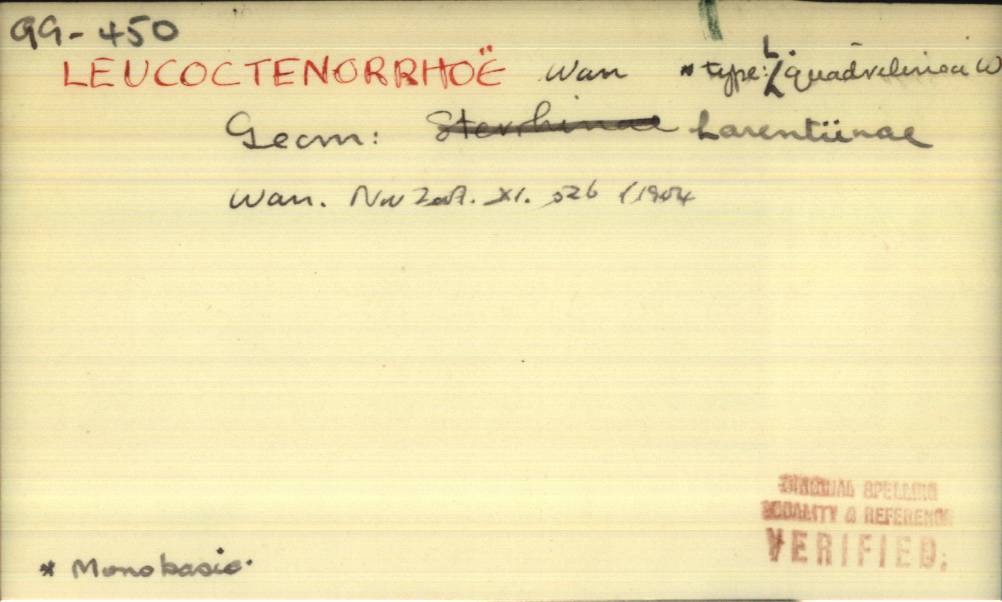 GG-450
LEUCOCTENORRHOË Warr *type: L. quadrilinea W
Geom: Sterrhinae Larentiinae
Warr. Nov Zool. XI. 526 (1904
ORIGINAL SPELLING
& REFERENCE
VERIFIED.
* Monobasic.